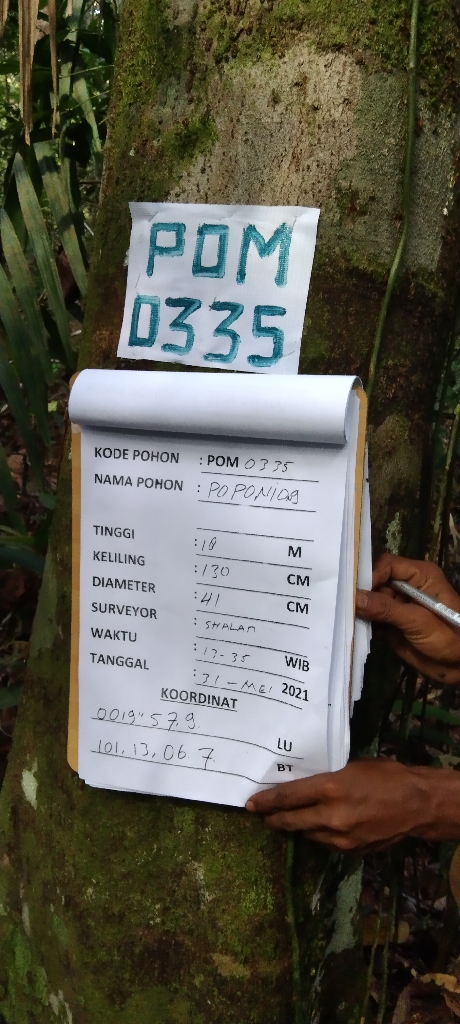 POM
0335
KODE POHON : POM 0335
NAMA POHON : POPONIDG
TINGGI : 18 M
KELILING : 130 CM
DIAMETER : 41 CM
SURVEYOR : SHALAN
WAKTU : 13-35 WIB
TANGGAL : 31 - MEI 2021
KOORDINAT
0019" 57.9. LU
101, 13, 06. 7 BT